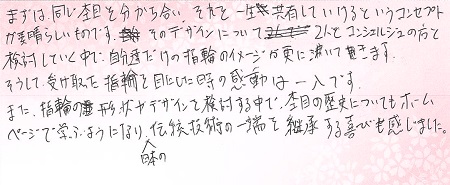 まずは、同じ杢目を分かち合い、それを一生共有していけるというコンセプト
が素晴らしいものです。そのデザインについて2人とコンシェルジュの方と
検討していく中で、自分達だけの指輪のイメージが更に沸いて来ます。
そうして、受け取った指輪を目にした時の感動は一入です。
また、指輪の形状やデザインを検討する中で、杢目の歴史についてもホーム
ページで学ぶようになり、日本の伝統技術の一端を継承する喜びも感じました。